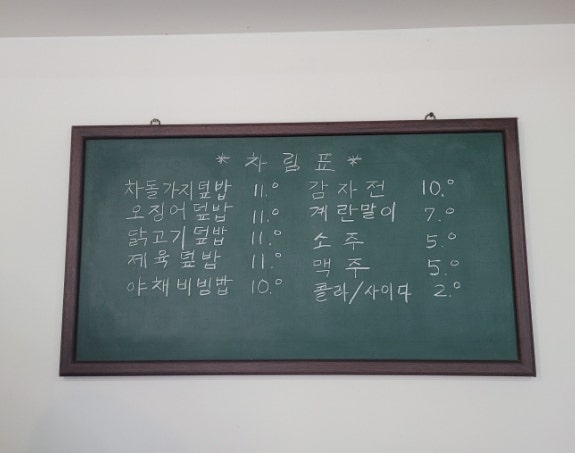 * 차림표 *
차돌가지덮밥 11.0 감자전 10.0
오징어덮밥 11.0 계란말이 7.0
닭고기덮밥 11.0 소주 5.0
제육덮밥 11.0 맥주 5.0
야채비빔밥 10.0 콜라/사이다 2.0